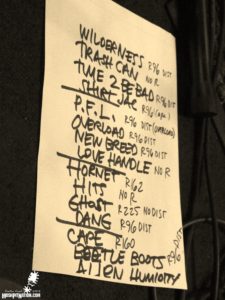 WILDERNESS R96 DIST
TRASH CAN R96 DIST
TIME 2 BE BAD NO R
SHIRT JAC R96 DIST
P.F.L. R96
OVERLOAD R96 DIST (OVERLOAD)
NEW BREED R96 DIST
LOVE HANDLE R96 DIST
HORNET NO R
HITS R162
GHOST NO R
DANG R225 NO DIST
CAPE R96 DIST
BEETLE BOOTS R160
ALIEN HUMIDITY R96 DIST